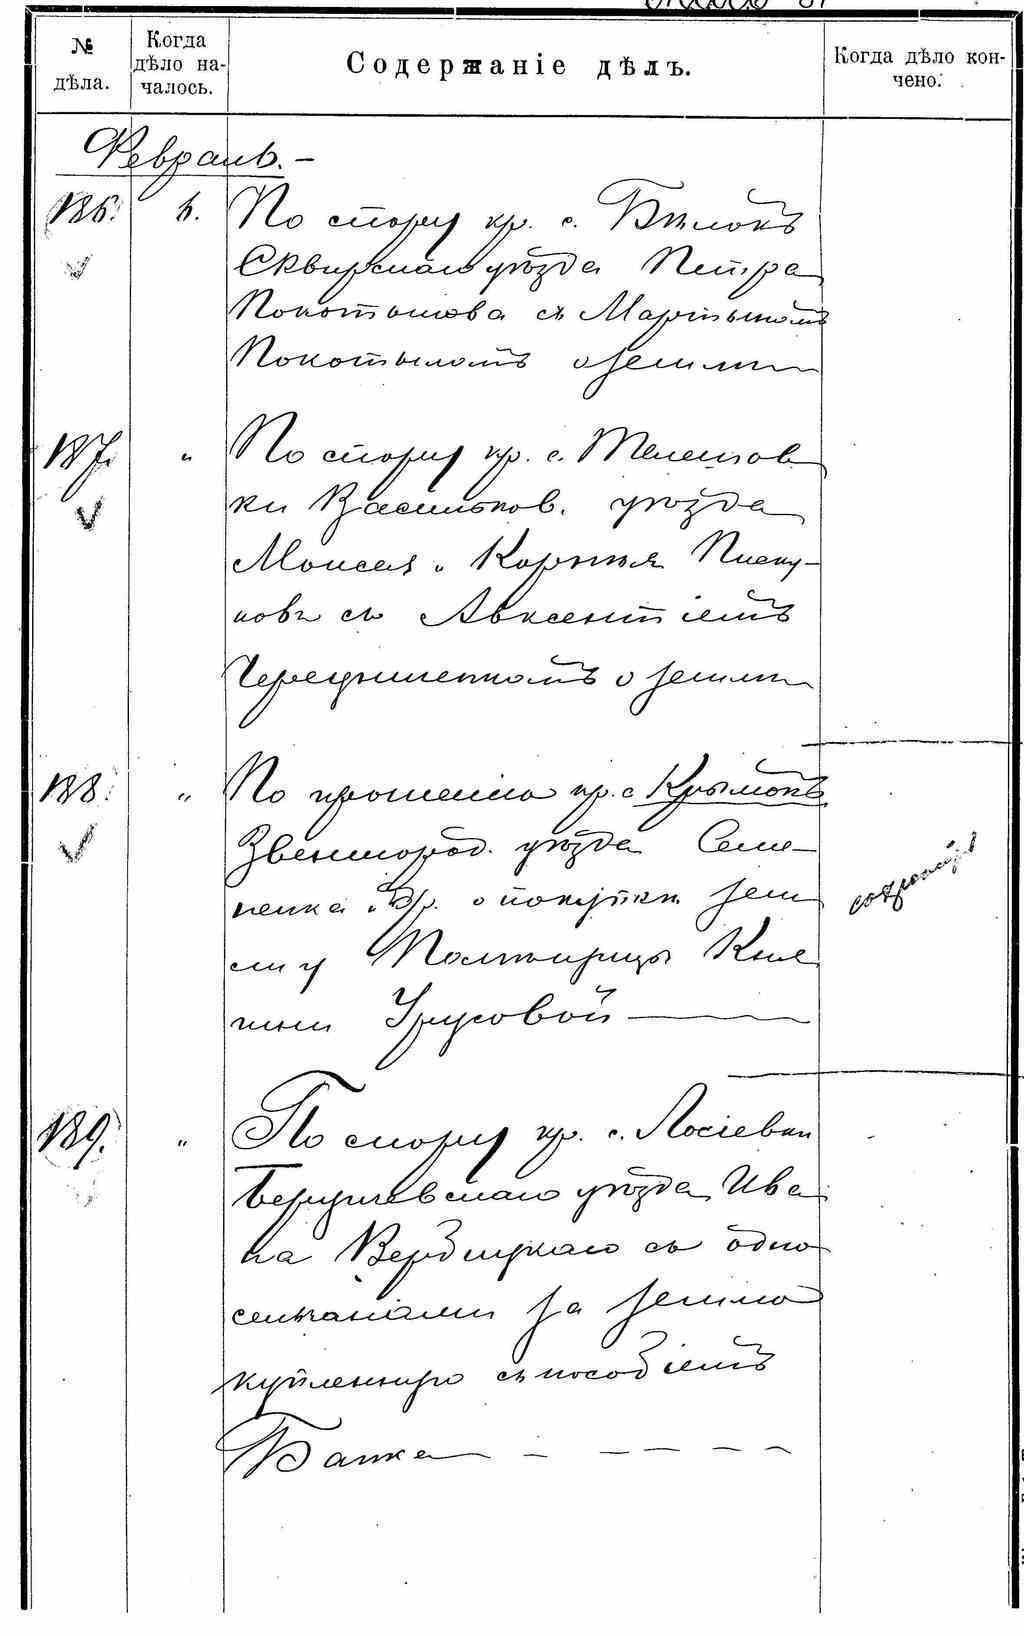 № дѣла.
Когда дѣло на-чалось.
Содержаніе дѣлъ.
Когда дѣло кон-чено.
Февраль. –
186. 6. По спору кр. с. Бѣлокъ
Сквирскаго уѣзда Петра
Покотылова съ Мартыномъ
Покотыломъ о землѣ
187. " По спору кр. с. Телешов
ки Васильков. уѣзда
Моисея и Корнѣя Писку-
новъ съ Авксентіемъ
Чередниченкомъ о землѣ
188. " По прошенію кр. с Крымокъ
Звенигород. уѣзда Семе-
ненка и др. о покупкѣ зем
ли у Княги
гини Урусовой
189. " По спору кр. с. Лосіевки
Бердичевскаго уѣзда Ива
на Вербицкаго съ одно
сельчанами за землю
купленную съ пособіемъ
Банка – – – – –